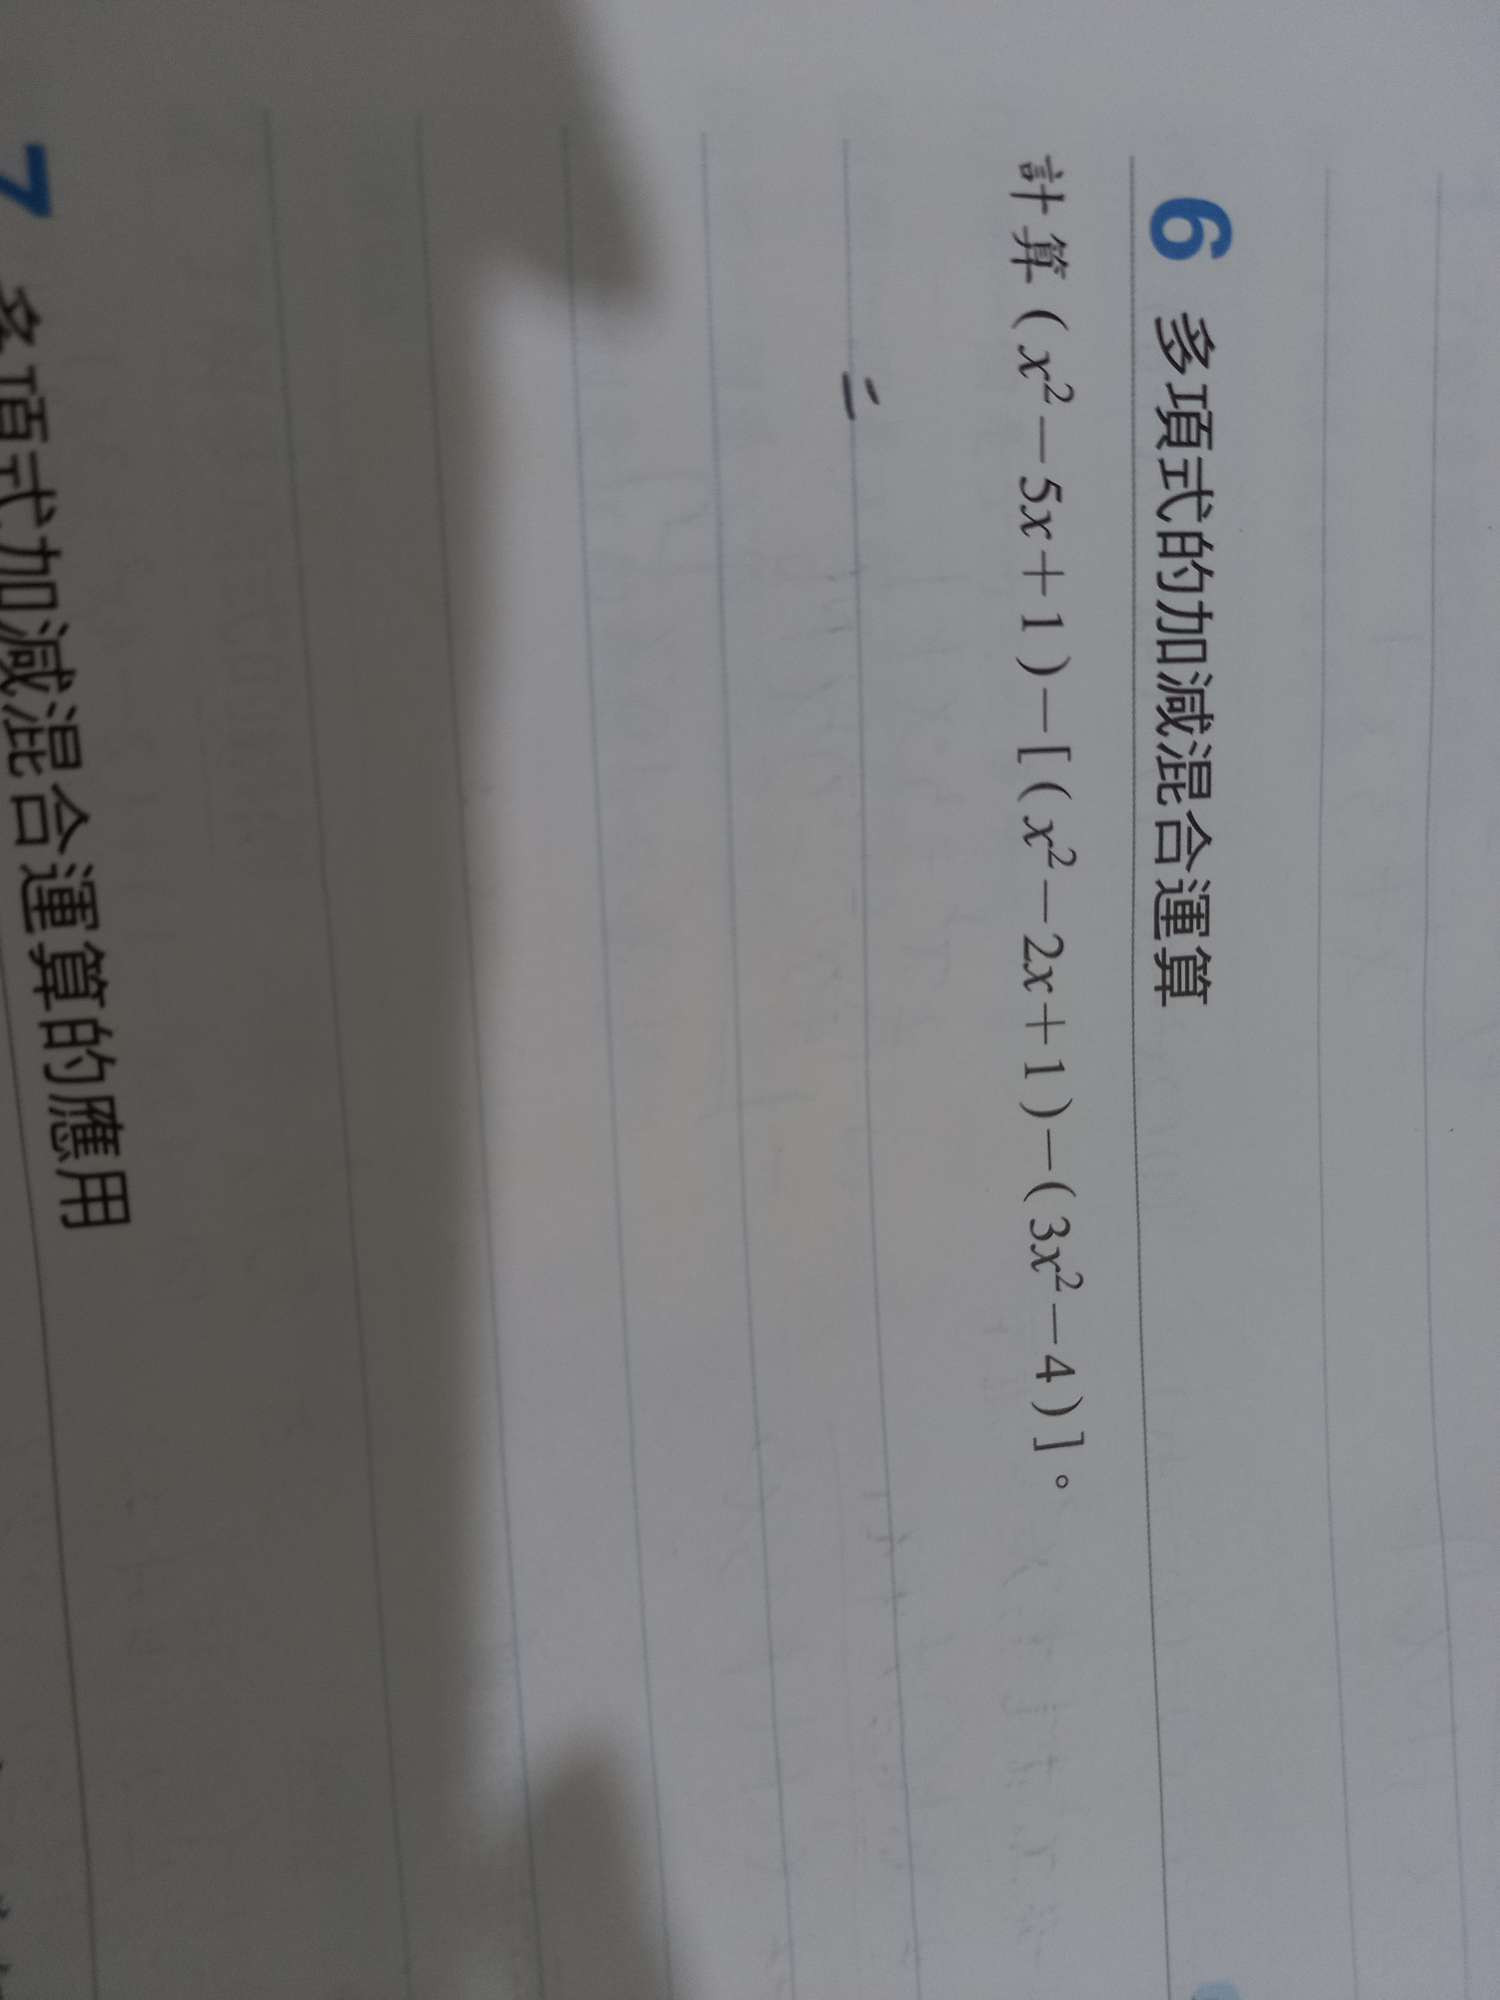 6 多項式的加減混合運算
計算(x²－5x＋1)－[(x²－2x＋1)－(3x²－4)]。
=
7 多項式加減混合運算的應用